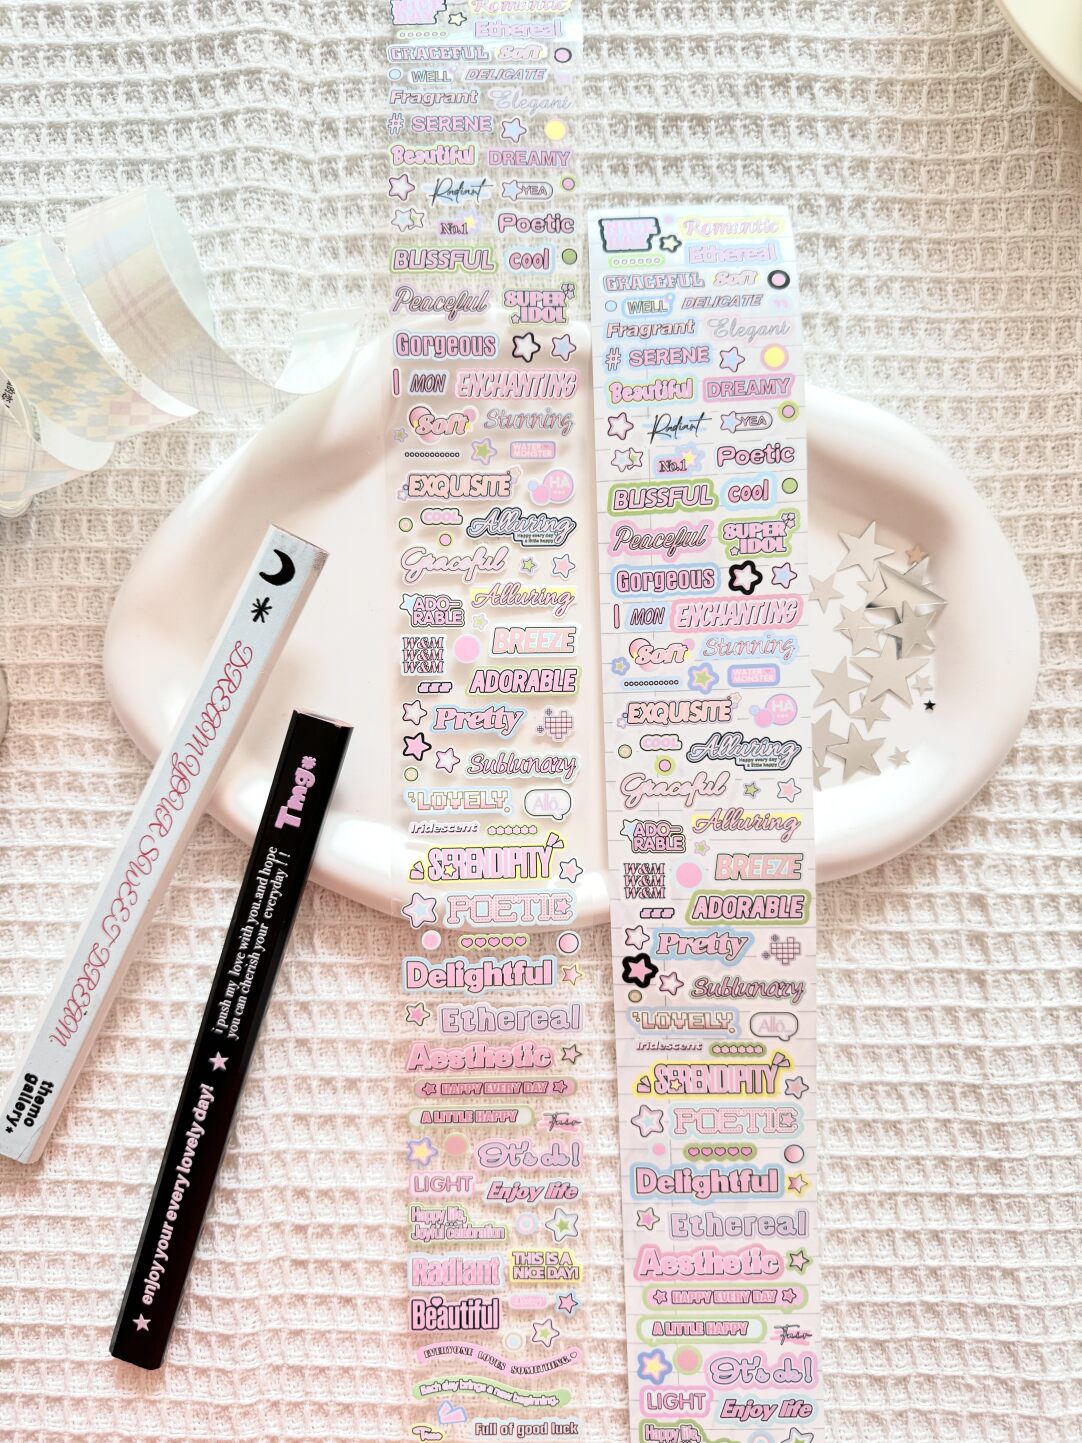 NICE
DAY
Romantic
Ethereal
GRACEFUL Soft
WELL DELICATE
Fragrant Elegant
# SERENE
Beautiful DREAMY
Radiant YEA
No.1 Poetic
BLISSFUL cool
Peaceful SUPER
IDOL
Gorgeous
MON ENCHANTING
Soft Stunning
WATER
MONSTER
EXQUISITE HA
COOL Alluring
Happy every day
a little happy
Graceful
ADO-
RABLE
Alluring
W&M
W&M
W&M
BREEZE
ADORABLE
Pretty
Sublunary
LOVELY Allô...
Iridescent
SERENDIPITY
POETIC
Delightful
Ethereal
Aesthetic
HAPPY EVERY DAY
A LITTLE HAPPY
Oh's oh!
LIGHT Enjoy life
Happy life,
Joyful celebration
Radiant THIS IS A
NICE DAY!
Beautiful
EVERYONE LOVES SOMETHING.
Each day brings a new beginning.
Full of good luck
NICE
DAY
Romantic
Ethereal
GRACEFUL Soft
WELL DELICATE
Fragrant Elegant
# SERENE
Beautiful DREAMY
Radiant YEA
No.1 Poetic
BLISSFUL cool
Peaceful SUPER
IDOL
Gorgeous
MON ENCHANTING
Soft Stunning
WATER
MONSTER
EXQUISITE HA
COOL Alluring
Happy every day
a little happy
Graceful
ADO-
RABLE
Alluring
W&M
W&M
W&M
BREEZE
ADORABLE
Pretty
Sublunary
LOVELY Allô...
Iridescent
SERENDIPITY
POETIC
Delightful
Ethereal
Aesthetic
HAPPY EVERY DAY
A LITTLE HAPPY
Oh's oh!
LIGHT Enjoy life
Happy life,
DREAM YOUR SWEET DREAM
themo
gallery*
Tmg*
i push my love with you.and hope
you can cherish your everyday!!
enjoy your every lovely day!